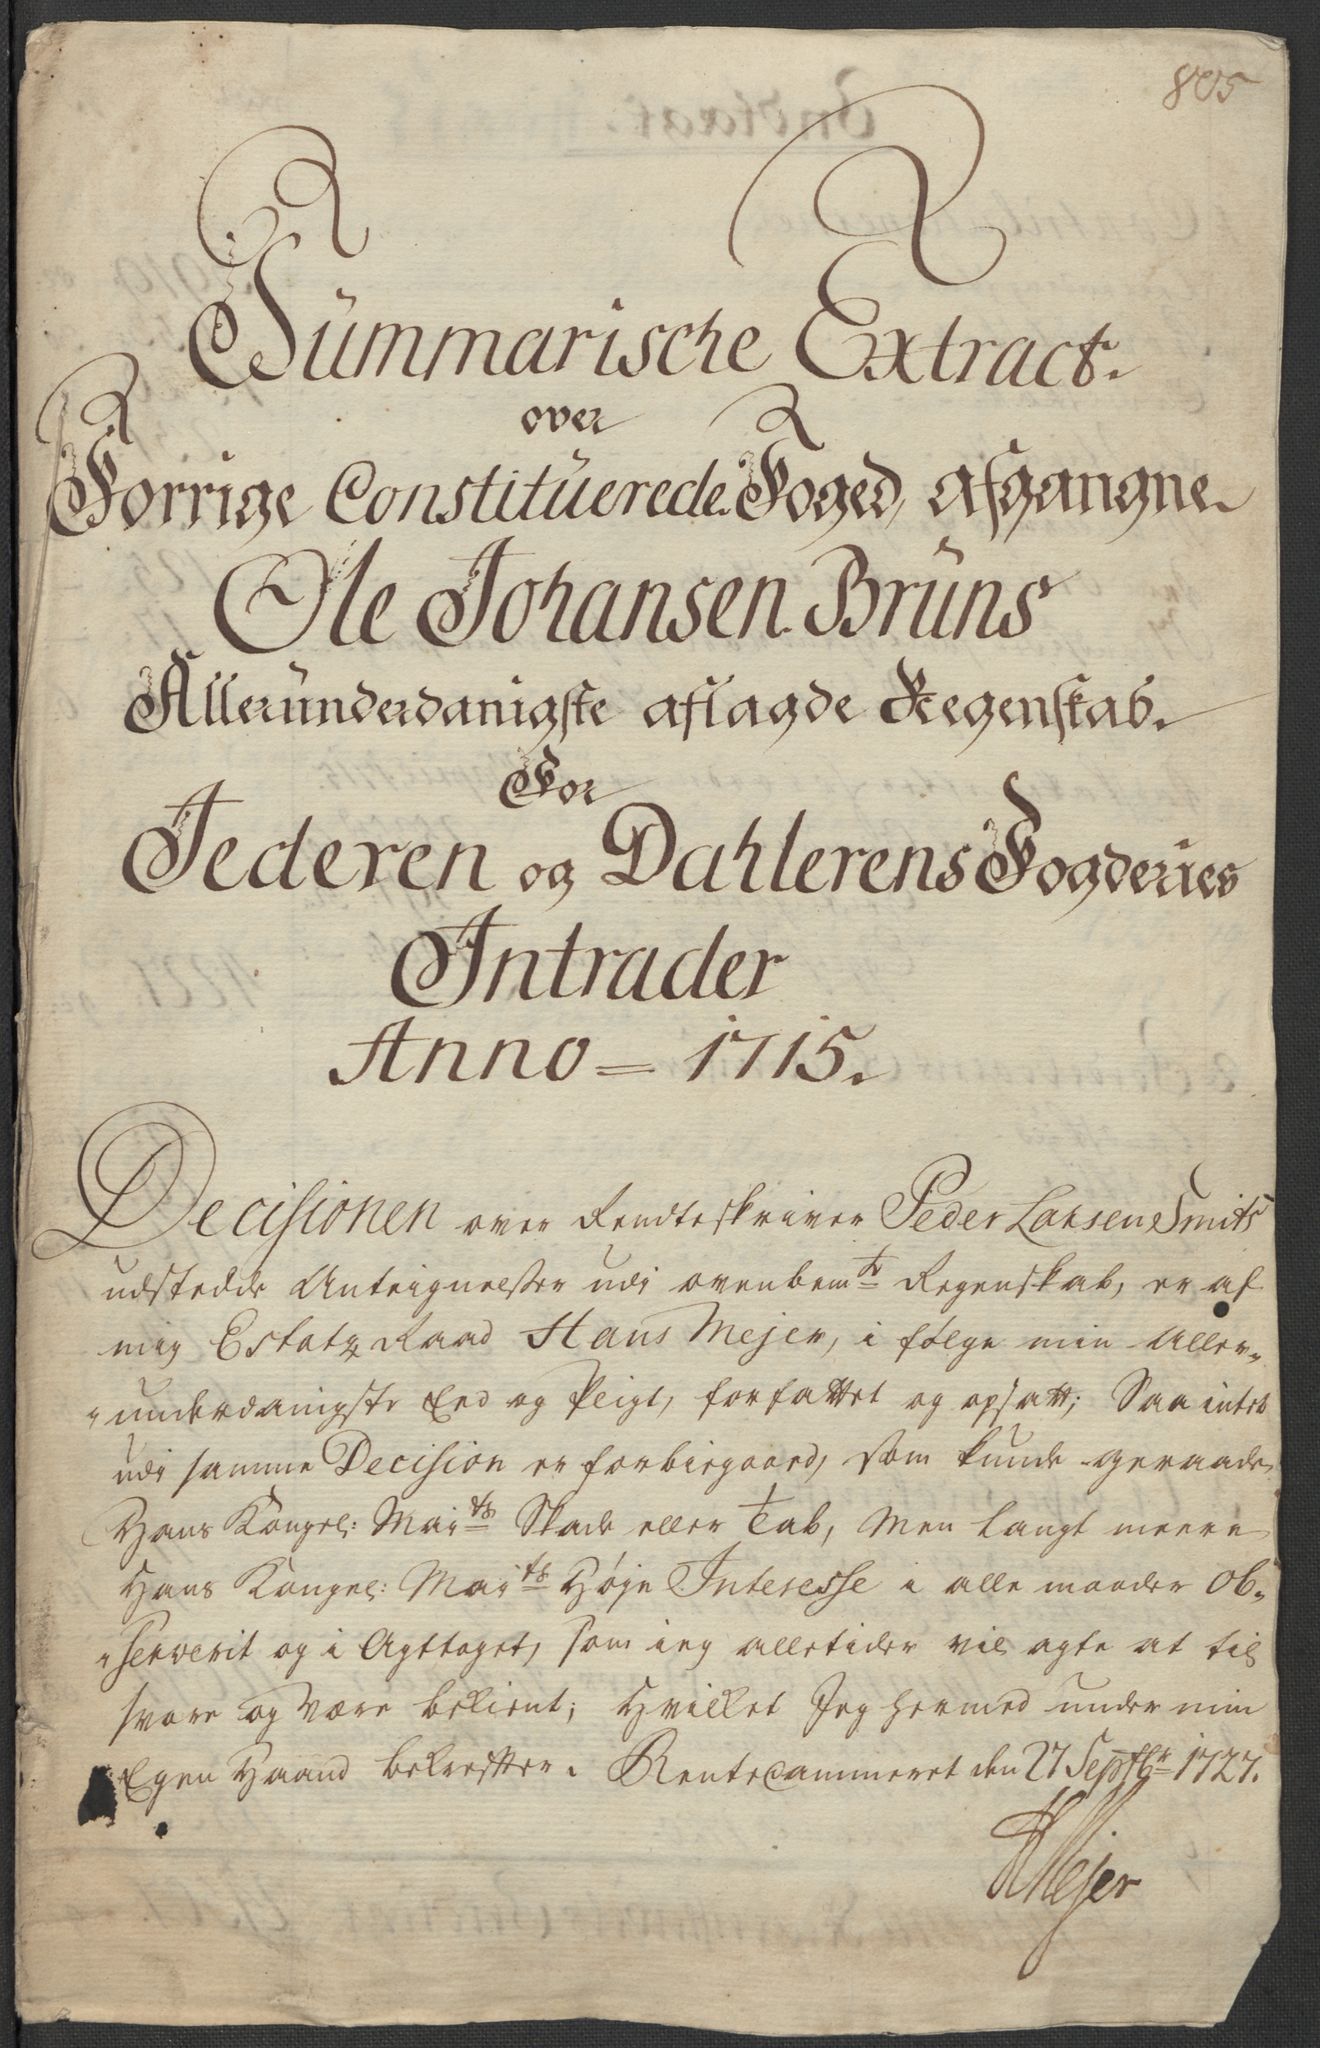 805
Summarische Extract.
over
Forrige Constituerede Foged, afgangne
Ole Johansen Bruns
Allerunderdanigste aflagde Regenskab.
For
Jederen og Dahlerens Fogderies
Intrader
Anno = 1715.
Decisionen over Rendteskriver Peder Larsen Smits
udstedde Anteignelsser udi ovenbemte Regenskab, er af
mig Estatz Raad Hans Mejer, i følge min Aller-
underdanigste Eed og Pligt, forfattet og opsatt; Saa intet
udi samme Decision er forbiegaaed, som kunde geraade
Hans Kongel: Maits Skade eller Tab, Men langt meere
Hans Kongel: Maits Høje Interesse i alle maader ob-
serverit og i Agttaget, som ieg alletider vil agte at til
svare og være bekient; Hvilket Jeg hermed under min
Egen Haand bekræfter. Rentecammeret den 27 Septbr 1727.
HMejer